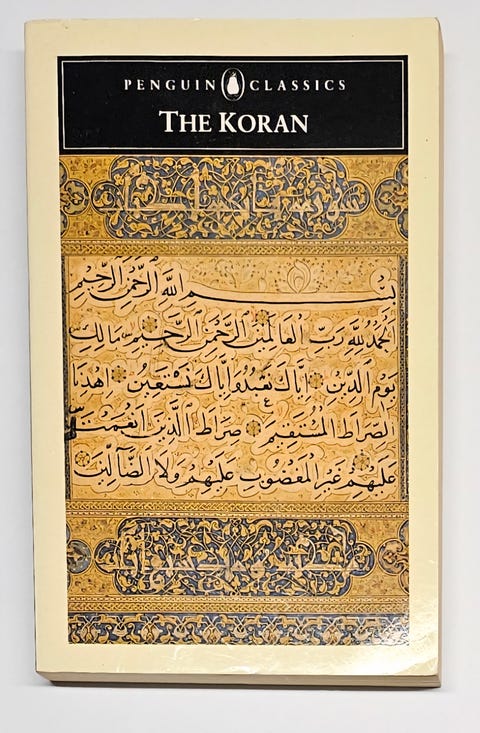 PENGUIN CLASSICS
THE KORAN
بسم الله الرحمن الرحيم
الحمد لله رب العالمين الرحمن الرحيم مالك
يوم الدين اياك نعبد واياك نستعين اهدنا
الصراط المستقيم صراط الذين انعمت
عليهم غير المغضوب عليهم ولا الضالين